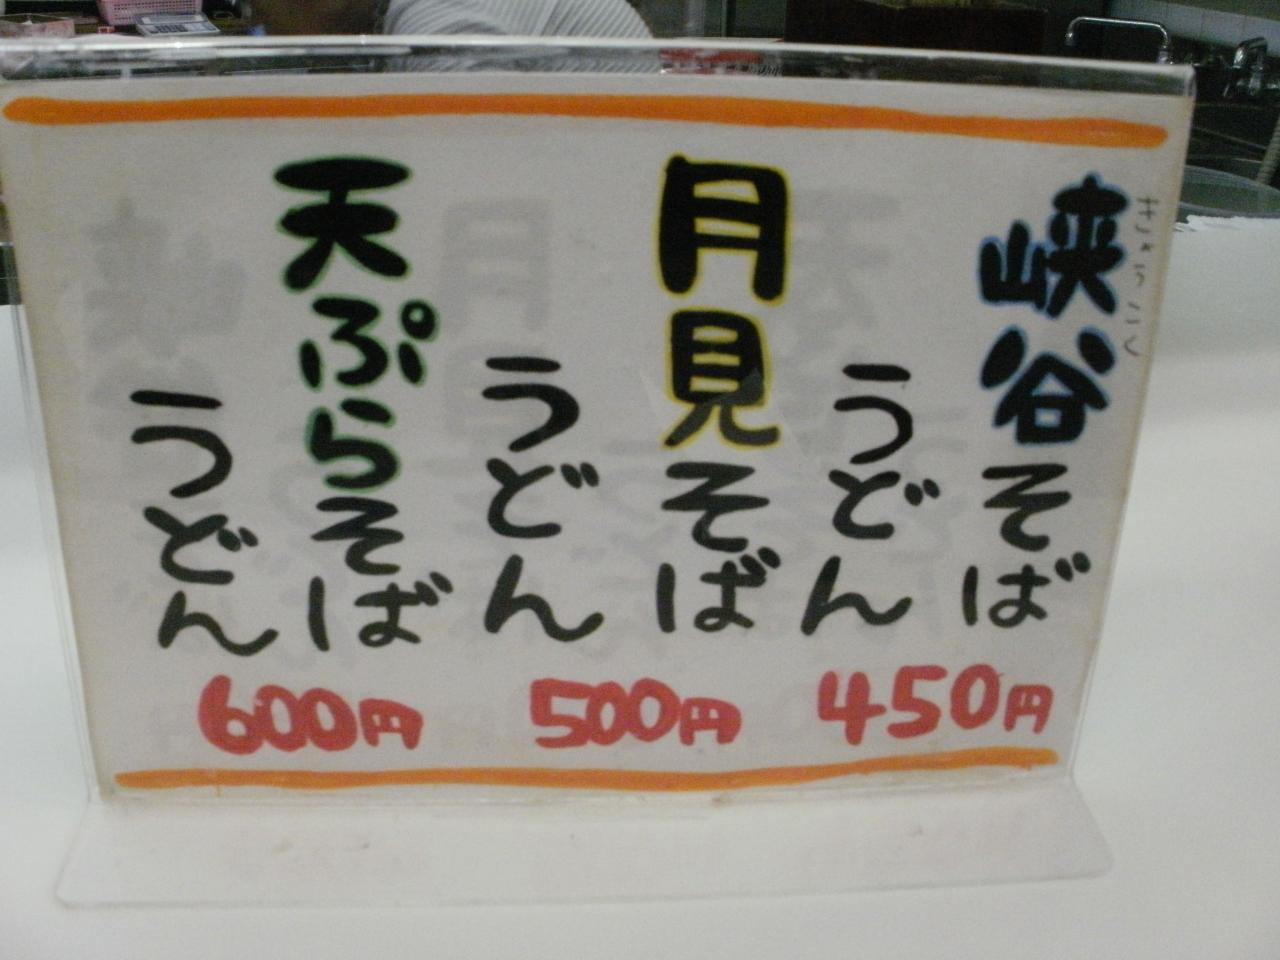 峡谷そば
きょうこく
うどん
450円
月見そば
うどん
500円
天ぷらそば
うどん
600円